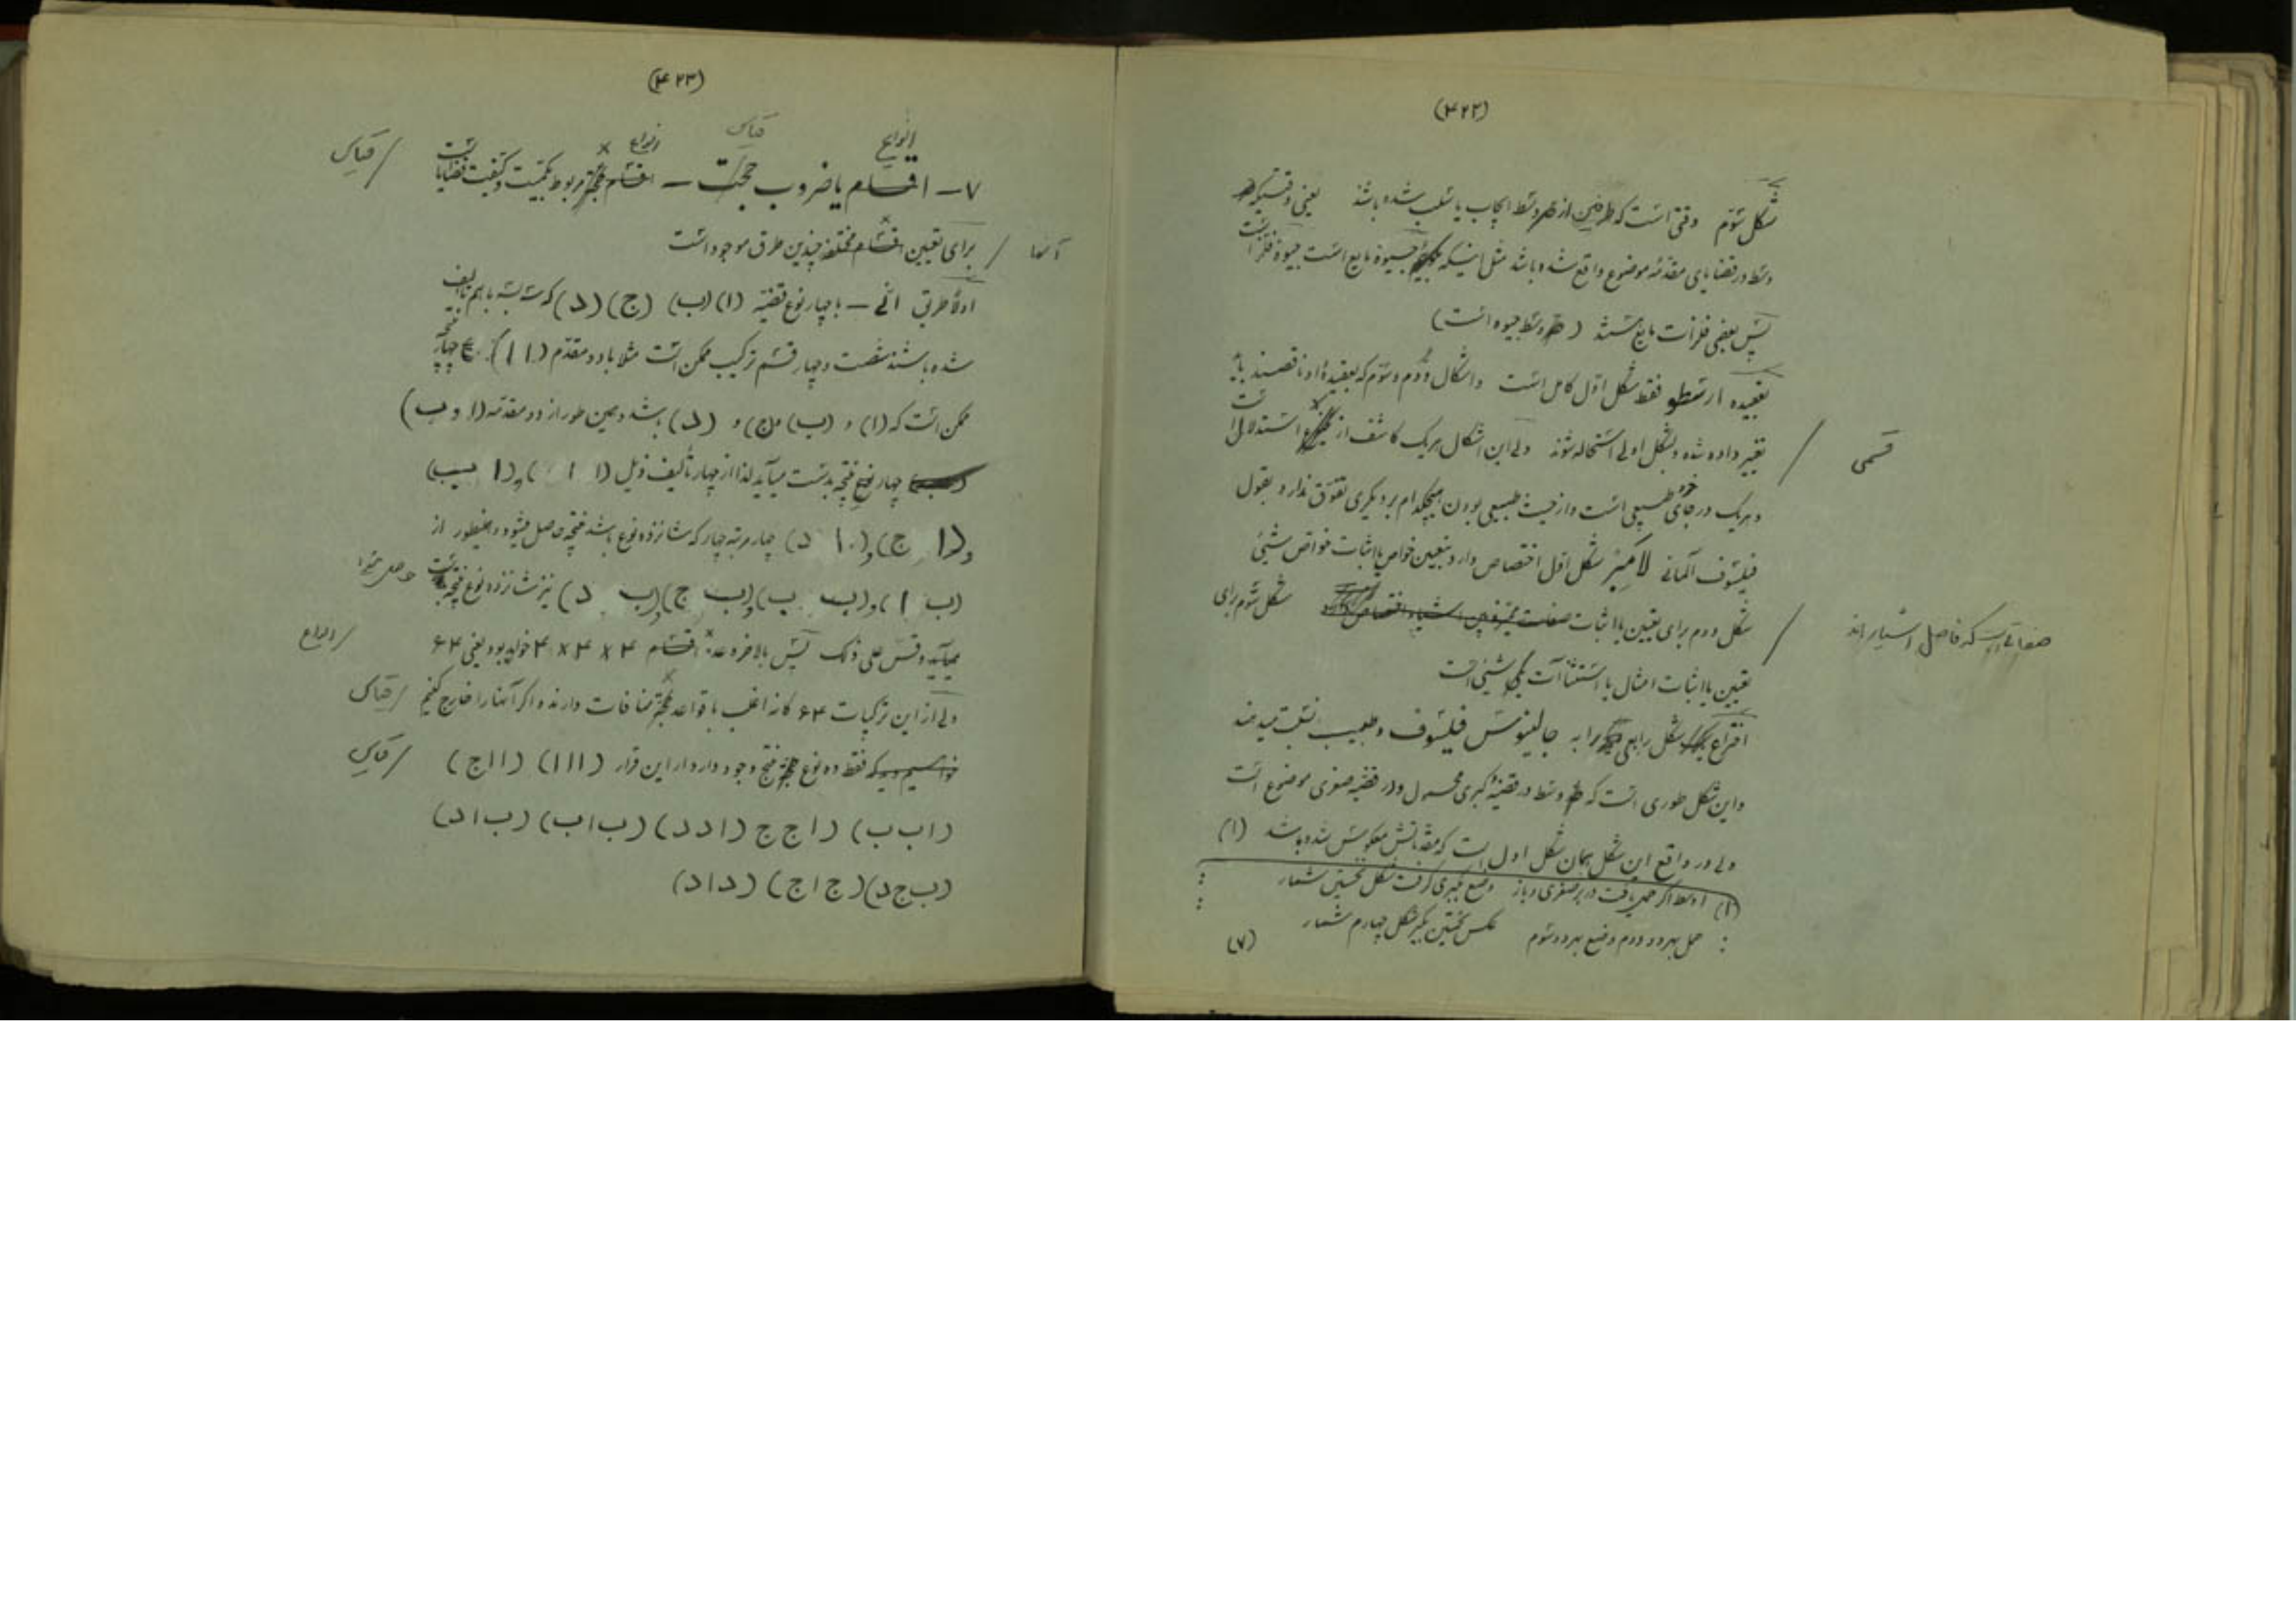 (۴۲۲)
شکل سوم وقتی است که طرفین از حد وسط ایجاب یا سلب شده باشد یعنی وقتیکه حد
وسط در قضایای مقدمه موضوع واقع شده باشد مثل اینکه جیوه مایع است جیوه فلز است
پس بعضی فلزات مایع هستند (حد وسط جیوه است)
بعقیده ارسطو فقط شکل اول کامل است و اشکال دوم و سوم که بعقیده او ناقصند باید
تغییر داده شده و بشکل اولی استحاله شوند ولی این اشکال هریک کاشف از استدلال است
قسمی
و هریک در جای خود طبیعی است و از حیث طبیعی بودن هیچکدام بر دیگری تفوق ندارد بقول
فیلسوف آلمانی لامبر شکل اول اختصاص دارد بتعیین خواص یا اثبات خواص شیئی
شکل دوم برای تعیین یا اثبات صفات ممیزه بین اشیاء اختصاص دارد شکل سوم برای
صفاتی است که فاصل اشیاء اند
تعیین یا اثبات امثال یا استثناآت یک شیئی است
اختراع شکل رابعی را به جالینوس فیلسوف و طبیب نسبت میدهند
و این شکل طوری است که حد وسط در قضیه کبری محمول و در قضیه صغری موضوع است
ولی در واقع این شکل همان شکل اول است که مقدماتش معکوس شده باشد (۱)
(۱) اوسط اگر حمل یافت در بر صغری و باز وضع بکبری گرفت شکل نخستین شمار
حمل بهر دو دوم وضع بهر دو سوم عکس نخستین بگیر شکل چهارم شمار
(۷)
(۴۲۳)
انواع قیاس انواع
۷ - اقسام یا ضروب حجت - اقسام حجة مربوط بکمیت و کیفیت قضایا است
قیاس
برای تعیین اقسام مختلفه چندین طرق موجود است
آنها
اولاً طریق انی - با چهار نوع قضیه (ا) (ب) (ج) (د) که سه بسه با هم تألیف
شده باشند شصت و چهار قسم ترکیب ممکن است مثلا با دو مقدم (ا ا) چهار نتیجه
ممکن است که (ا) و (ب) و (ج) و (د) باشد و همین طور از دو مقدمه (ا و ب)
چهار نوع نتیجه بدست میآید لذا از چهار تألیف ذیل (ا ا) و (ا ب)
و (ا ج) و (ا د) چهار مرتبه چهار که شانزده نوع باشد نتیجه حاصل میشود و همینطور از
(ب ا) و (ب ب) و (ب ج) و (ب د) نیز شانزده نوع نتیجه بدست
حاصل میشود
میآید و قس علی ذلک پس بالاخره عده اقسام ۴ × ۴ × ۴ خواهد بود یعنی ۶۴
انواع
ولی از این ترکیبات ۶۴ گانه اغلب با قواعد حجة منافات دارند و اگر آنها را خارج کنیم
قیاس
خواهیم دید که فقط ده نوع حجة منتج وجود دارد از این قرار (ا ا ا) (ا ا ج)
قیاس
(ا ب ب) (ا ج ج) (ا د د) (ب ا ب) (ب ا د)
(ب ج د) (ج ا ج) (د ا د)